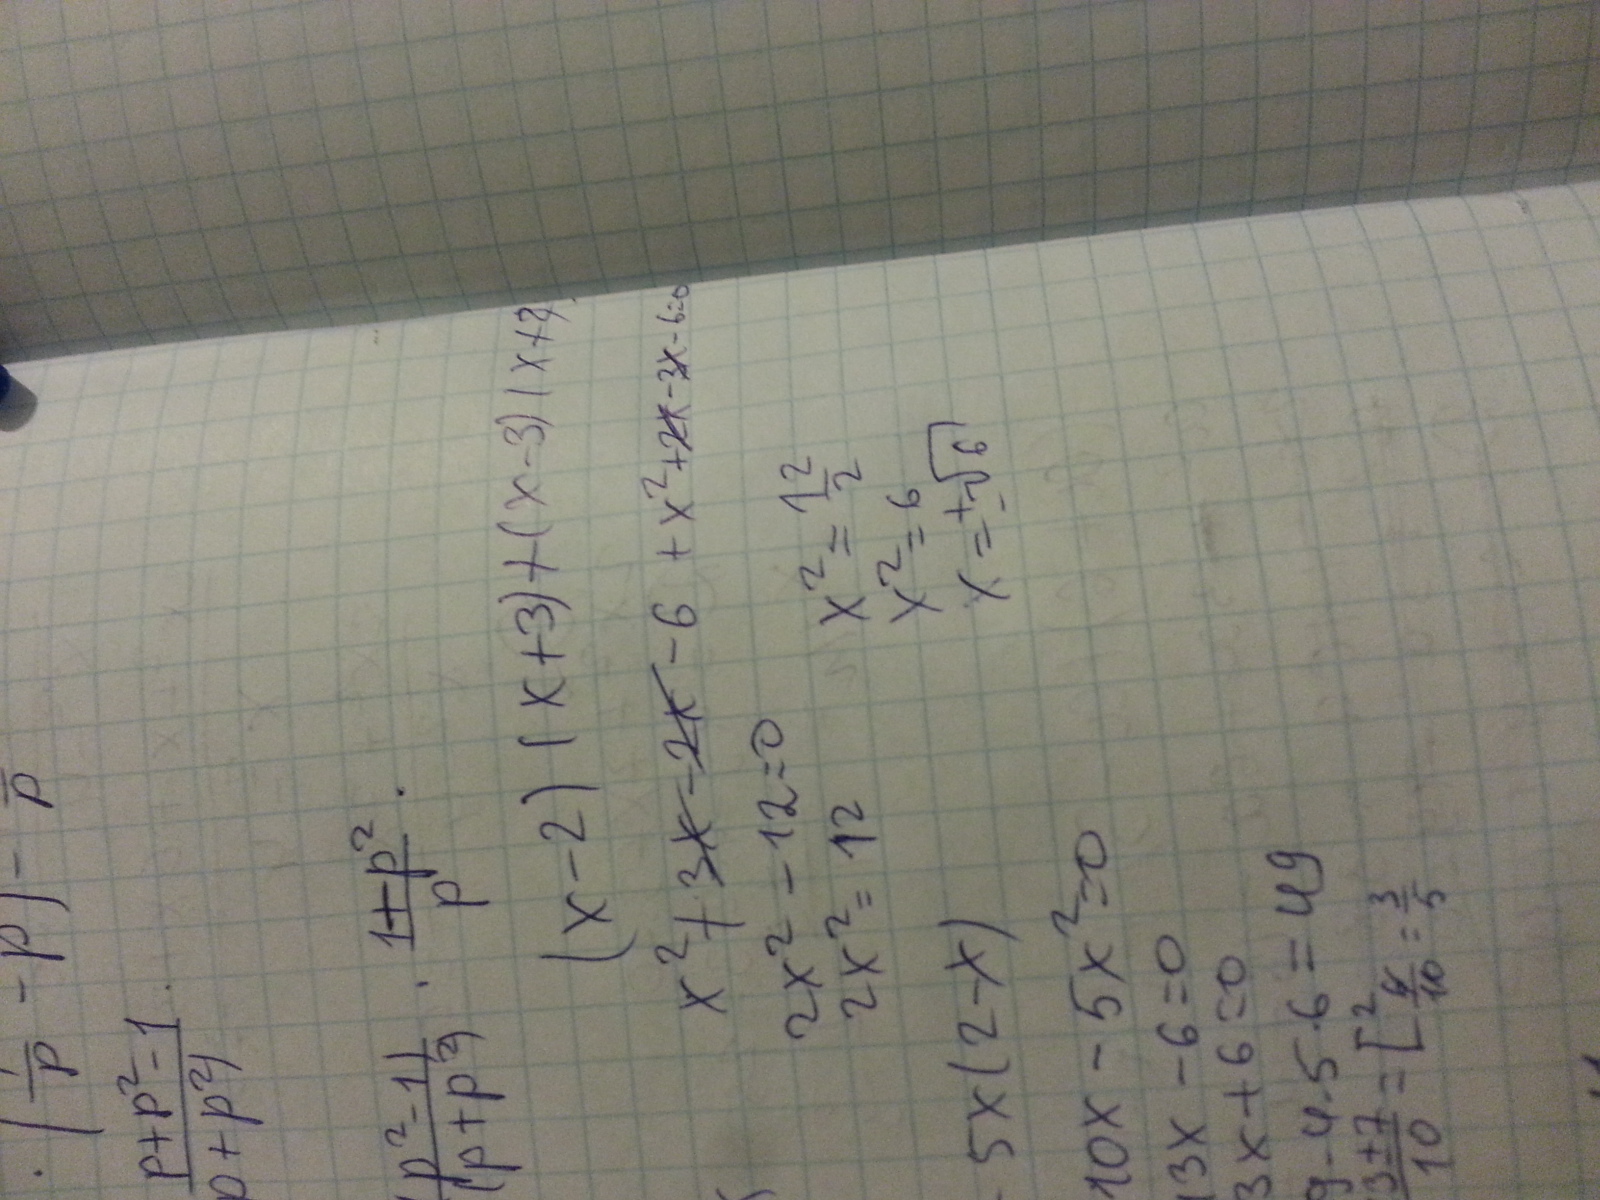 · (1/p - p) - p
p+p²-1 ·
p+p²)
p²-1) · 1+p² ·
(p+p²) p
(x-2)(x+3)+(x-3)(x+2)
x²+3x-2x-6+x²+2x-3x-6=0
2x²-12=0
2x²=12
x²=12/2
x²=6
x=±√6
5x(2-x)
10x-5x²=0
13x-6=0
3x+6=0
9-4·5·6=49
3±7/10=[2
6/10=3/5